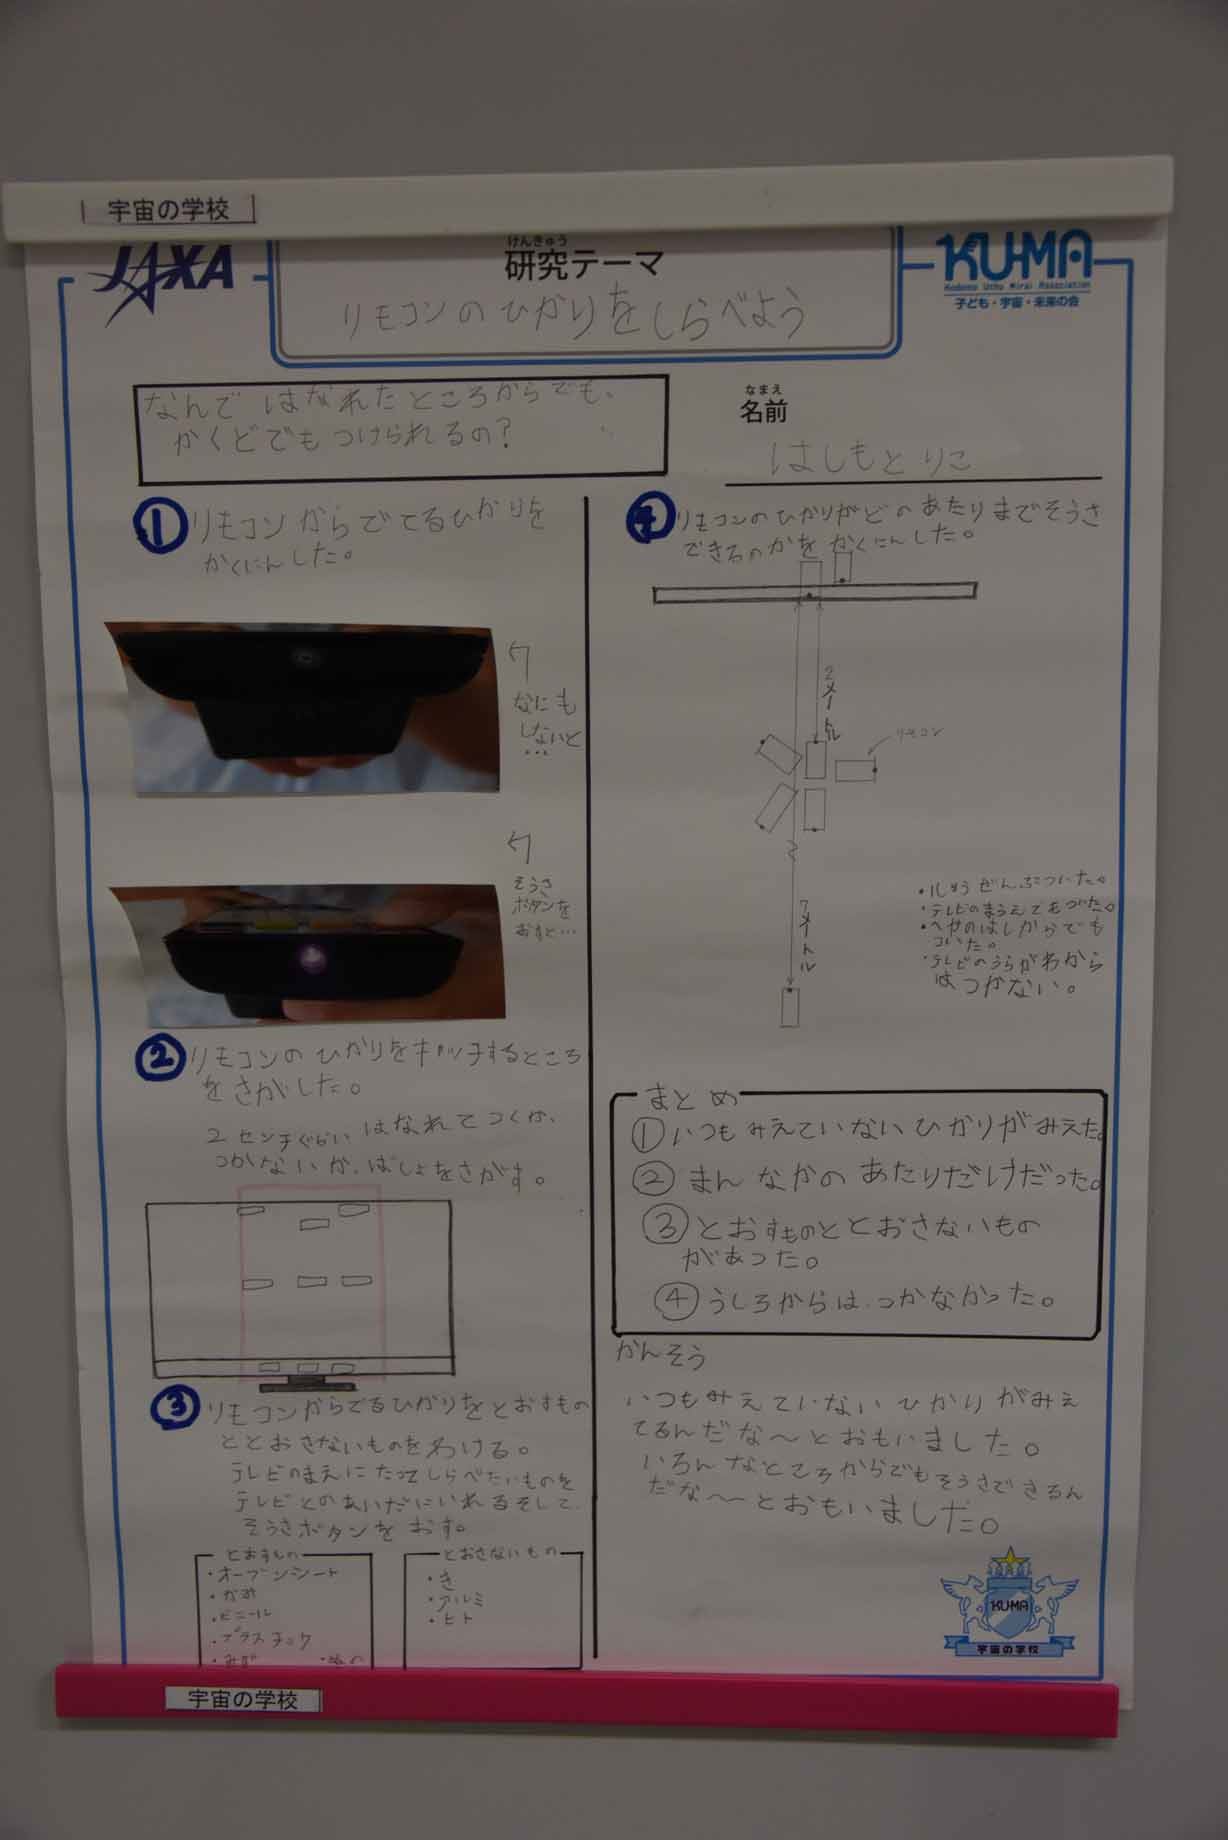 宇宙の学校
JAXA
けんきゅう
研究テーマ
リモコンのひかりをしらべよう
KU-MA
Kodomo Uchu Mirai Association
子ども・宇宙・未来の会
なんで はなれたところからでも、
かくどでもつけられるの?
なまえ
名前
はしもとりこ
① リモコンからでてるひかりを
かくにんした。
なにも
しないと
…
そうさ
ボタンを
おすと…
② リモコンのひかりをキャッチするところ
をさがした。
2センチぐらいはなれてつくか、
つかないか、ばしょをさがす。
③ リモコンからでるひかりをとおすもの
ととおさないものをわける。
テレビのまえにたってしらべたいものを
テレビとのあいだにいれるそして
そうさボタンをおす。
とおすもの
・オーブンシート
・かみ
・ビニール
・プラスチック
とおさないもの
・き
・アルミ
・ヒト
④ リモコンのひかりがどのあたりまでそうさ
できるのかをかくにんした。
2メートル
リモコン
7メートル
ぜんぶついた。
・テレビのまうえでもついた。
・へやのはしからでも
ついた。
・テレビのうらがわから
はつかない。
まとめ
①いつもみえていないひかりがみえた。
②まんなかのあたりだけだった。
③とおすものととおさないもの
があった。
④うしろからは、つかなかった。
かんそう
いつもみえていないひかりがみえ
てるんだな〜とおもいました。
いろんなところからでもそうさできるん
だな〜とおもいました。
KUMA
宇宙の学校
宇宙の学校